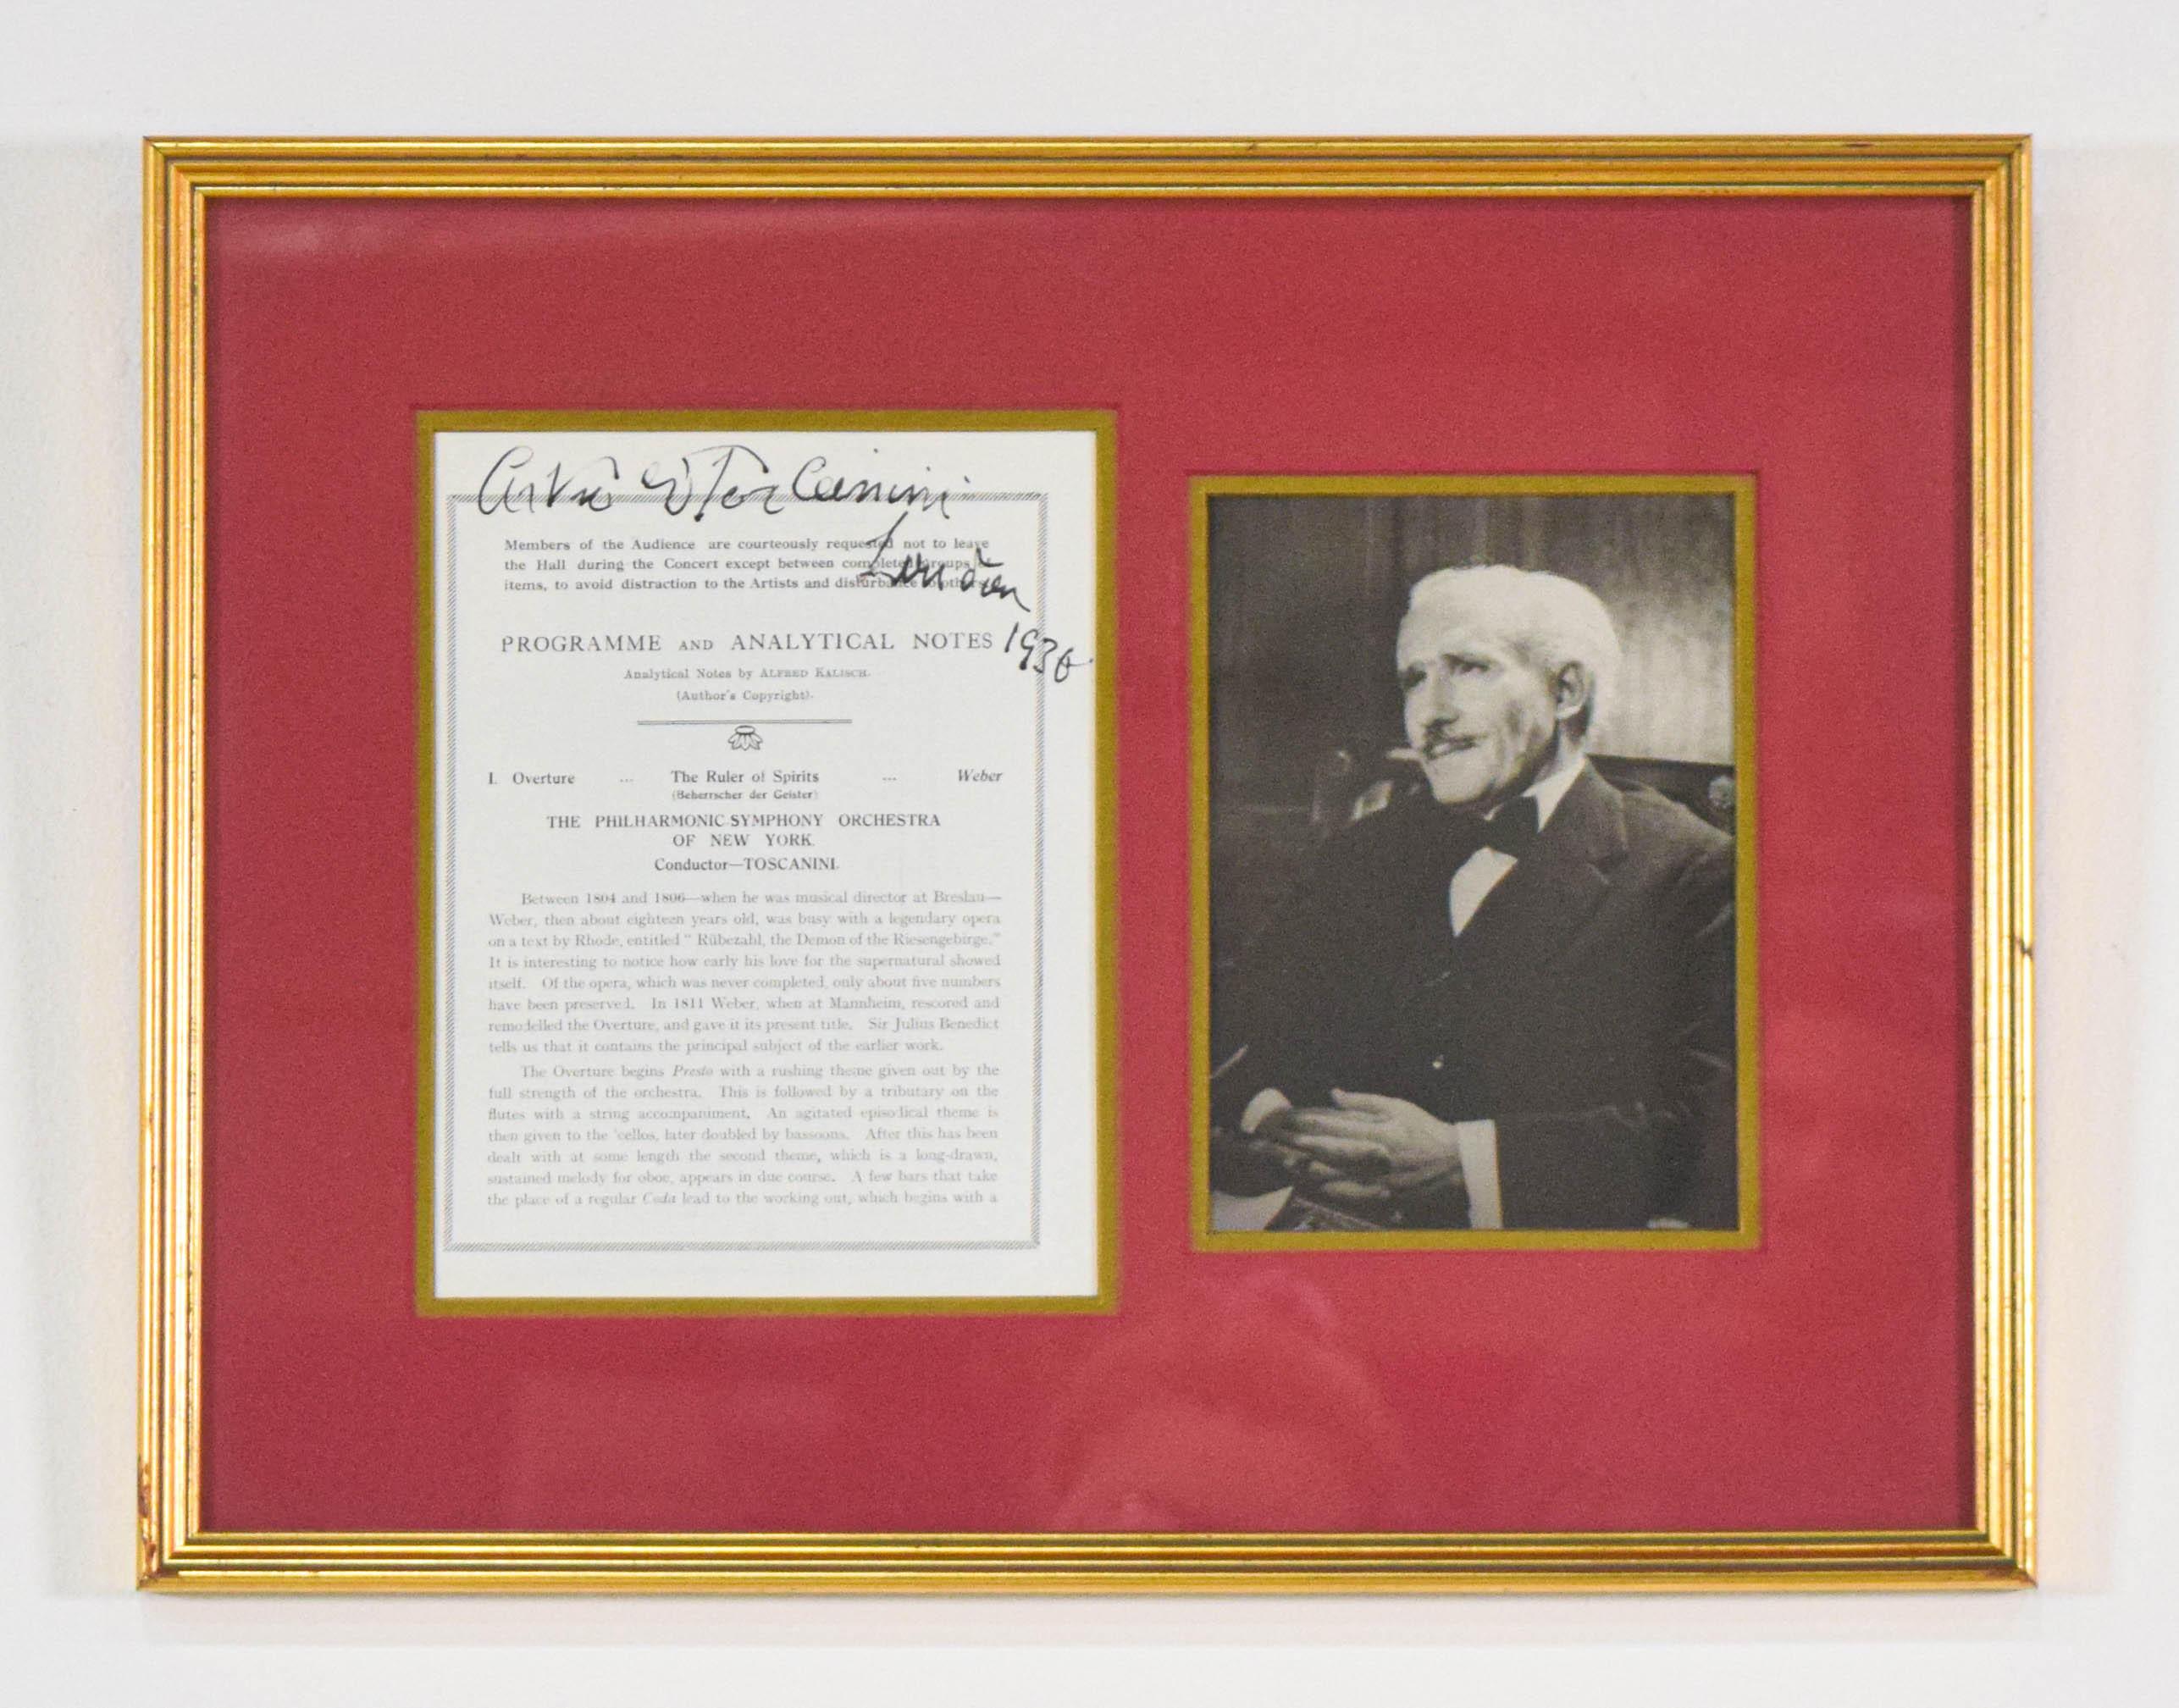 Arturo Toscanini
London
1930
Members of the Audience are courteously requested not to leave
the Hall during the Concert except between completed groups of
items, to avoid distraction to the Artists and disturbance to others.
PROGRAMME AND ANALYTICAL NOTES
Analytical Notes by ALFRED KALISCH.
(Author's Copyright).
I. Overture ... The Ruler of Spirits ... Weber
(Beherrscher der Geister)
THE PHILHARMONIC-SYMPHONY ORCHESTRA
OF NEW YORK.
Conductor—TOSCANINI.
Between 1804 and 1806—when he was musical director at Breslau—
Weber, then about eighteen years old, was busy with a legendary opera
on a text by Rhode, entitled "Rübezahl, the Demon of the Riesengebirge."
It is interesting to notice how early his love for the supernatural showed
itself. Of the opera, which was never completed, only about five numbers
have been preserved. In 1811 Weber, when at Mannheim, rescored and
remodelled the Overture, and gave it its present title. Sir Julius Benedict
tells us that it contains the principal subject of the earlier work.
The Overture begins Presto with a rushing theme given out by the
full strength of the orchestra. This is followed by a tributary on the
flutes with a string accompaniment. An agitated episodical theme is
then given to the 'cellos, later doubled by bassoons. After this has been
dealt with at some length the second theme, which is a long-drawn,
sustained melody for oboe, appears in due course. A few bars that take
the place of a regular Coda lead to the working out, which begins with a